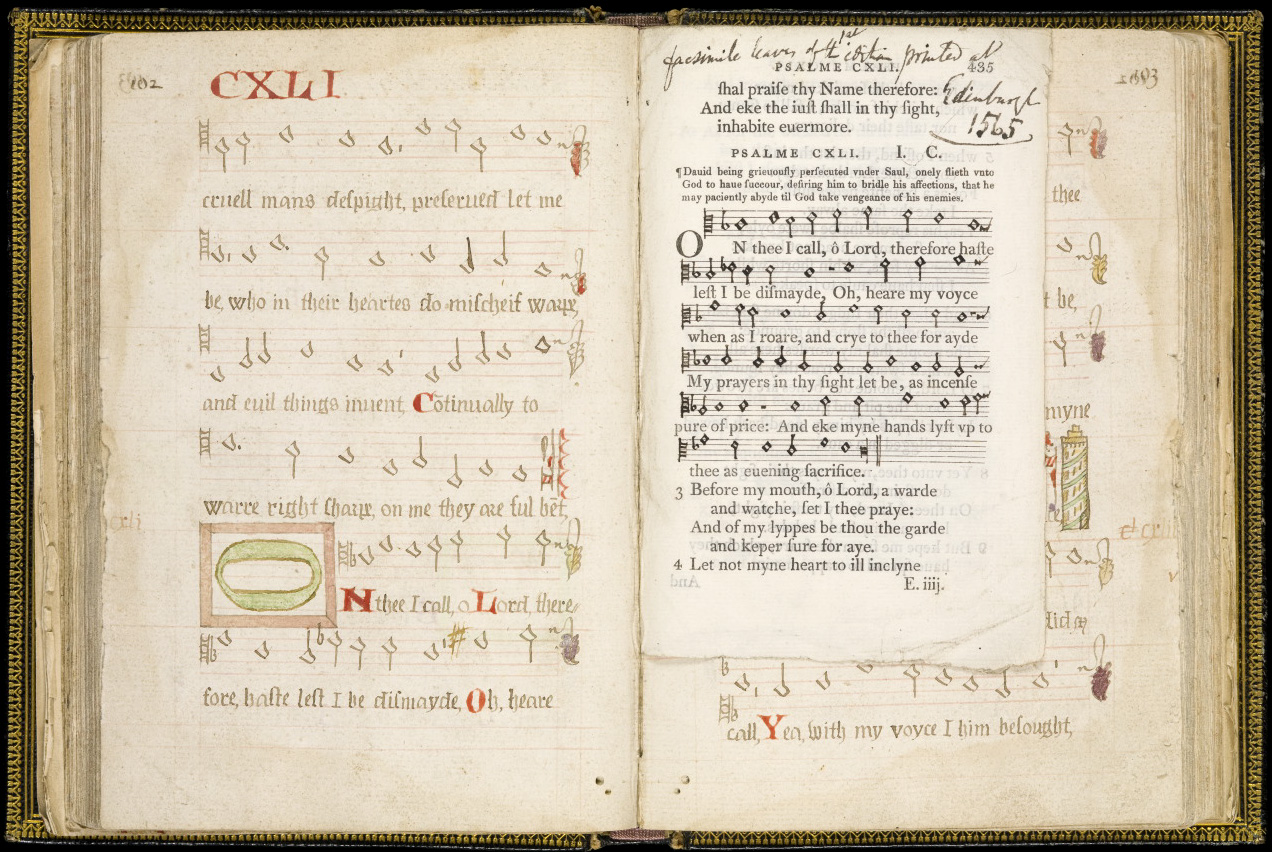 102
CXLI
cruell mans despight, preserued let me
be, who in their heartes do mischeif warp,
and euil things inuent, Cōtinually to
warre right sharp, on me they are ful bēt,
cxli
O
N thee I call, o Lord, there
fore, haste lest I be dismayde, Oh, heare
facsimile leaves of the 1st edition printed at
Edinburgh
1565
PSALME CXLI. 435
ſhal praiſe thy Name therefore:
And eke the iuſt ſhall in thy ſight,
inhabite euermore.
PSALME CXLI. I. C.
¶Dauid being grieuouſly perſecuted vnder Saul, onely flieth vnto
God to haue ſuccour, deſiring him to bridle his affections, that he
may paciently abyde til God take vengeance of his enemies.
ON thee I call, ô Lord, therefore haſte
leſt I be diſmayde, Oh, heare my voyce
when as I roare, and crye to thee for ayde
My prayers in thy ſight let be, as incenſe
pure of price: And eke myne hands lyft vp to
thee as euening ſacrifice.
3 Before my mouth, ô Lord, a warde
and watche, ſet I thee praye:
And of my lyppes be thou the garde
and keper ſure for aye.
4 Let not myne heart to ill inclyne
E. iiij.
And
thee
be,
myne
call, Yea, with my voyce I him besought,